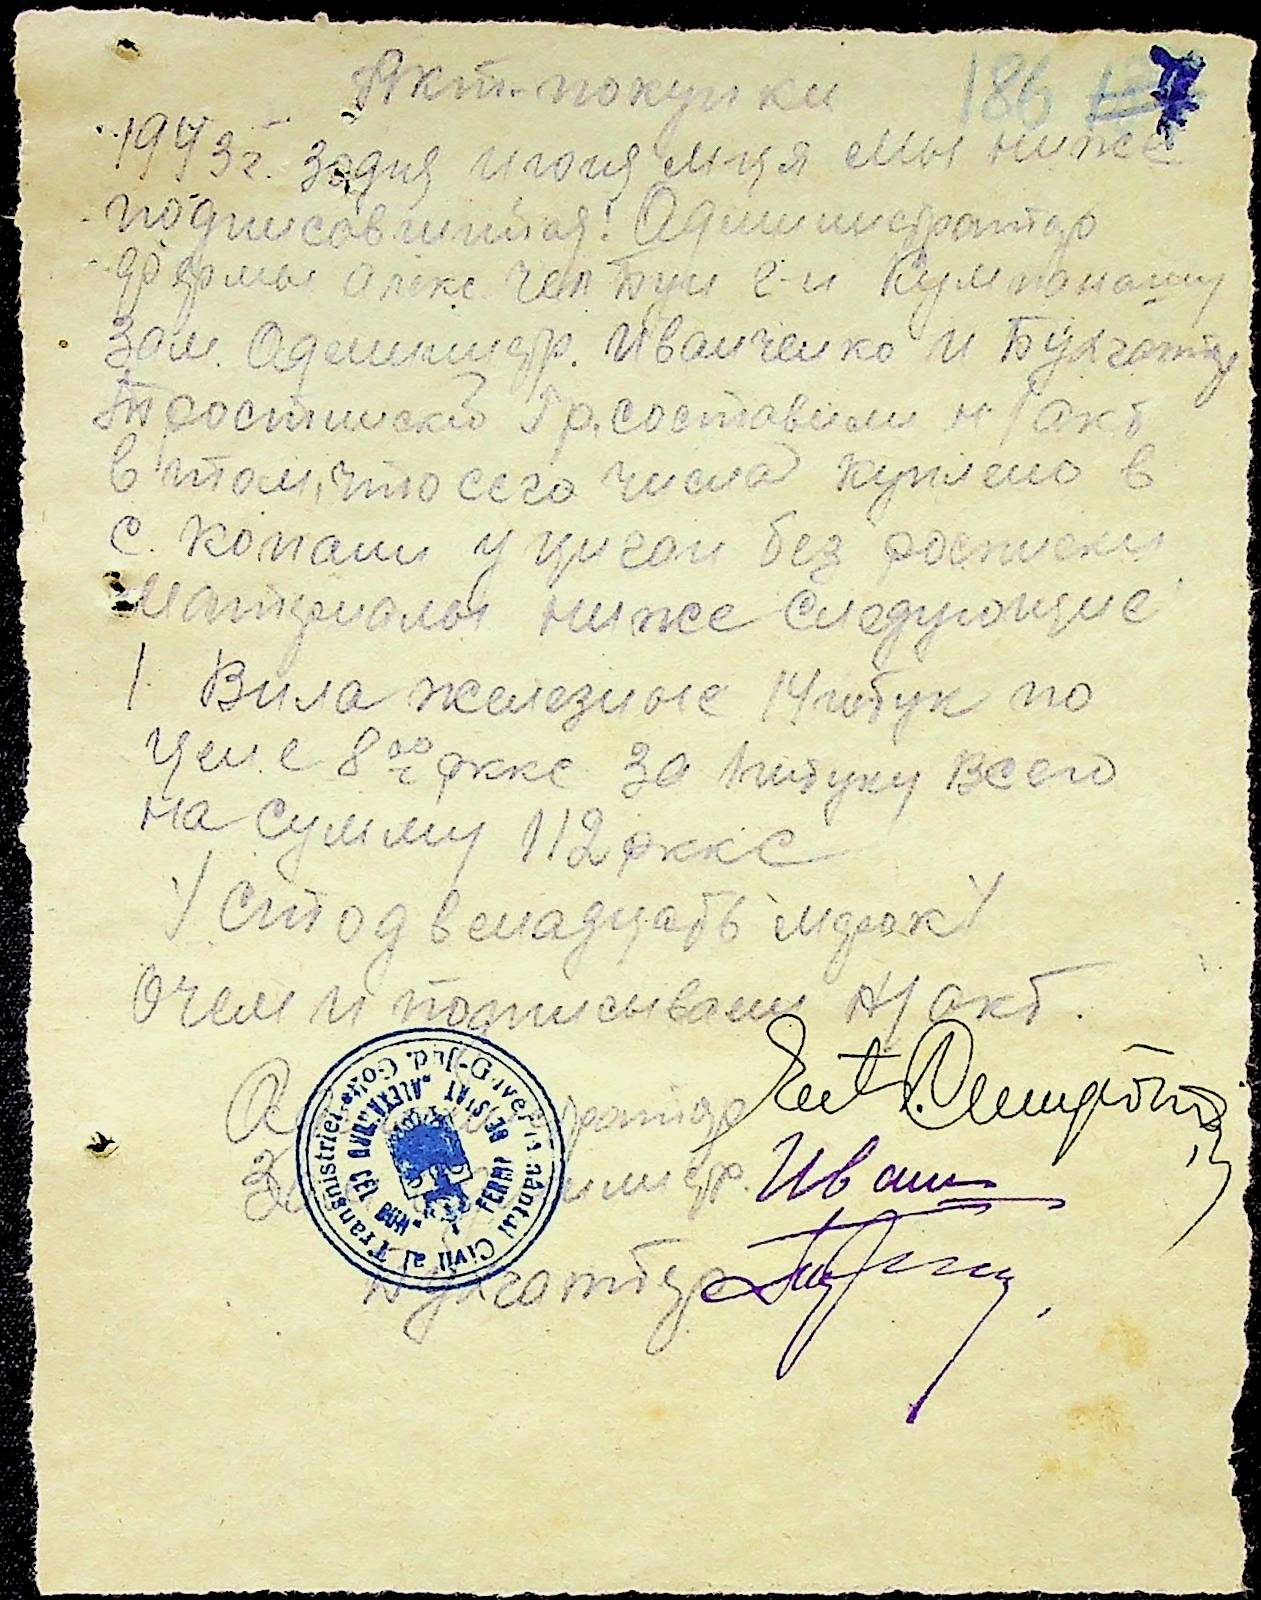 Акт-покупки
186
1943г. 30 дня июня м-ця мы ниже
подписавшиися: Администратор
фермы Алекс. Чел Бун г-н Кумпонашу
Зам. Администр. Иванченко и Бухгалтер
Тростинский Гр. составили н/акт
в том, что сего числа куплено в
с. Копани у циган без росписки
материалы ниже следующие
1. Вила железные 14 штук по
цене 8 00 рккс за 1 штуку всего
на сумму 112 рккс
/ Сто двенадцать марок /
О чем и подписываем н/акт.
Администратор
Зам. Админстр. Иван
Бухгалтер
Guvernământul Civil al Transnistriei-Jud.
FERMA DE STAT
"ALEXANDRU CEL BUN"